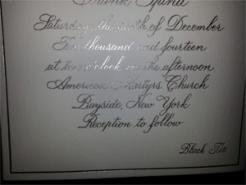 Saturday, the of December
Two thousand and fourteen
at two o'clock in the afternoon
American Martyrs Church
Bayside, New York
Reception to follow
Black Tie